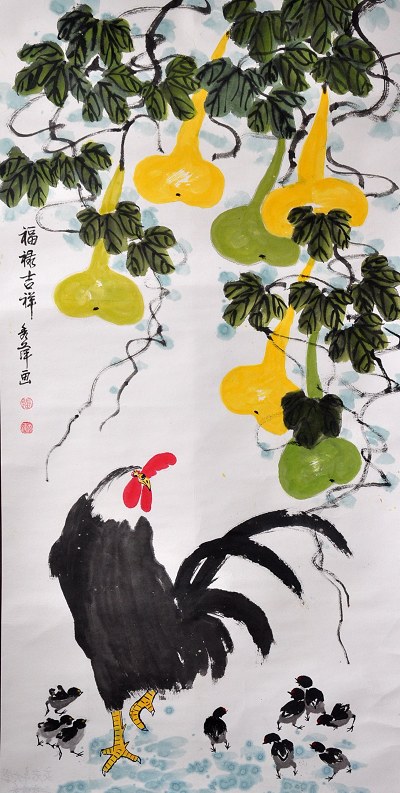 福禄吉祥
秀峰画